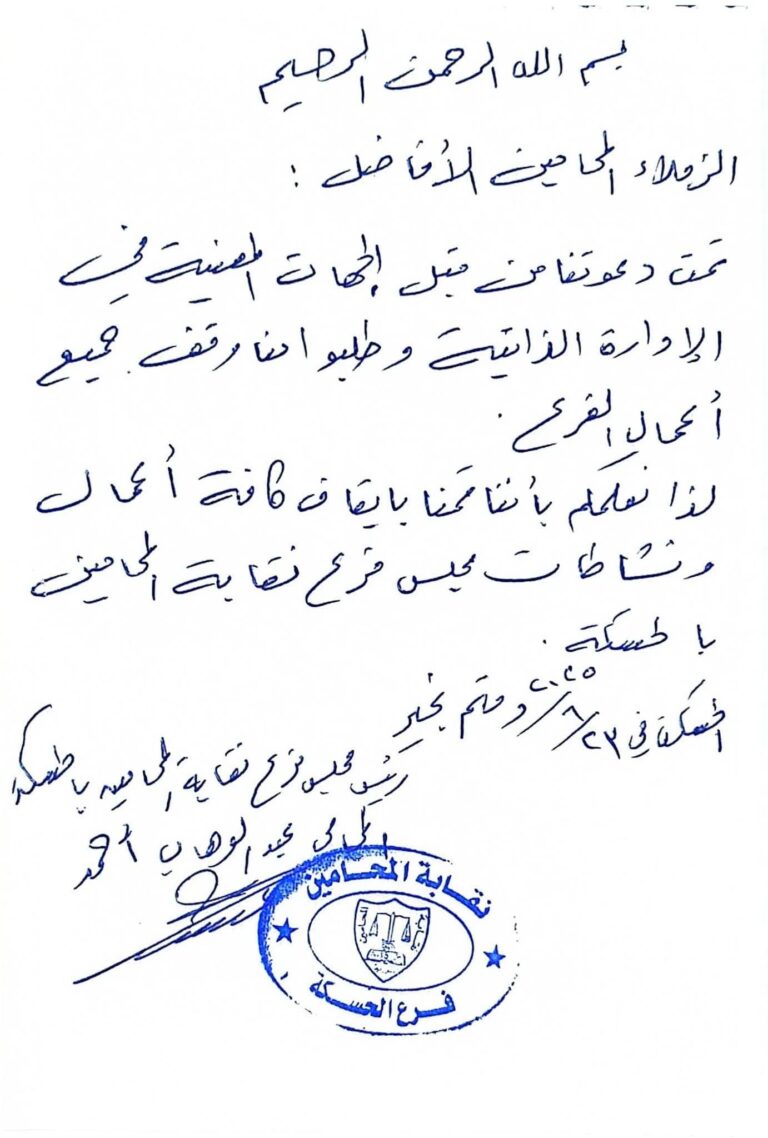 بسم الله الرحمن الرحيم
الزملاء المحامين الأفاضل :
تمت دعوتنا من قبل الجهات المعنية في
الإدارة الذاتية وطلبوا منا وقف جميع
أعمال الفرع .
لذا نعلمكم بأننا قمنا بإيقاف كافة أعمال
ونشاطات مجلس فرع نقابة المحامين
بالحسكة .
الحسكة في ٢٣/٨/٢٠٢٥ ودمتم بخير
رئيس مجلس فرع نقابة المحامين بالحسكة
المحامي عبد الوهاب أحمد
نقابة المحامين
فرع الحسكة